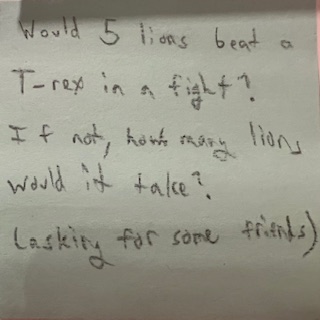 Would 5 lions beat a
T-rex in a fight?
If not, how many lions
would it take?
(asking for some friends)